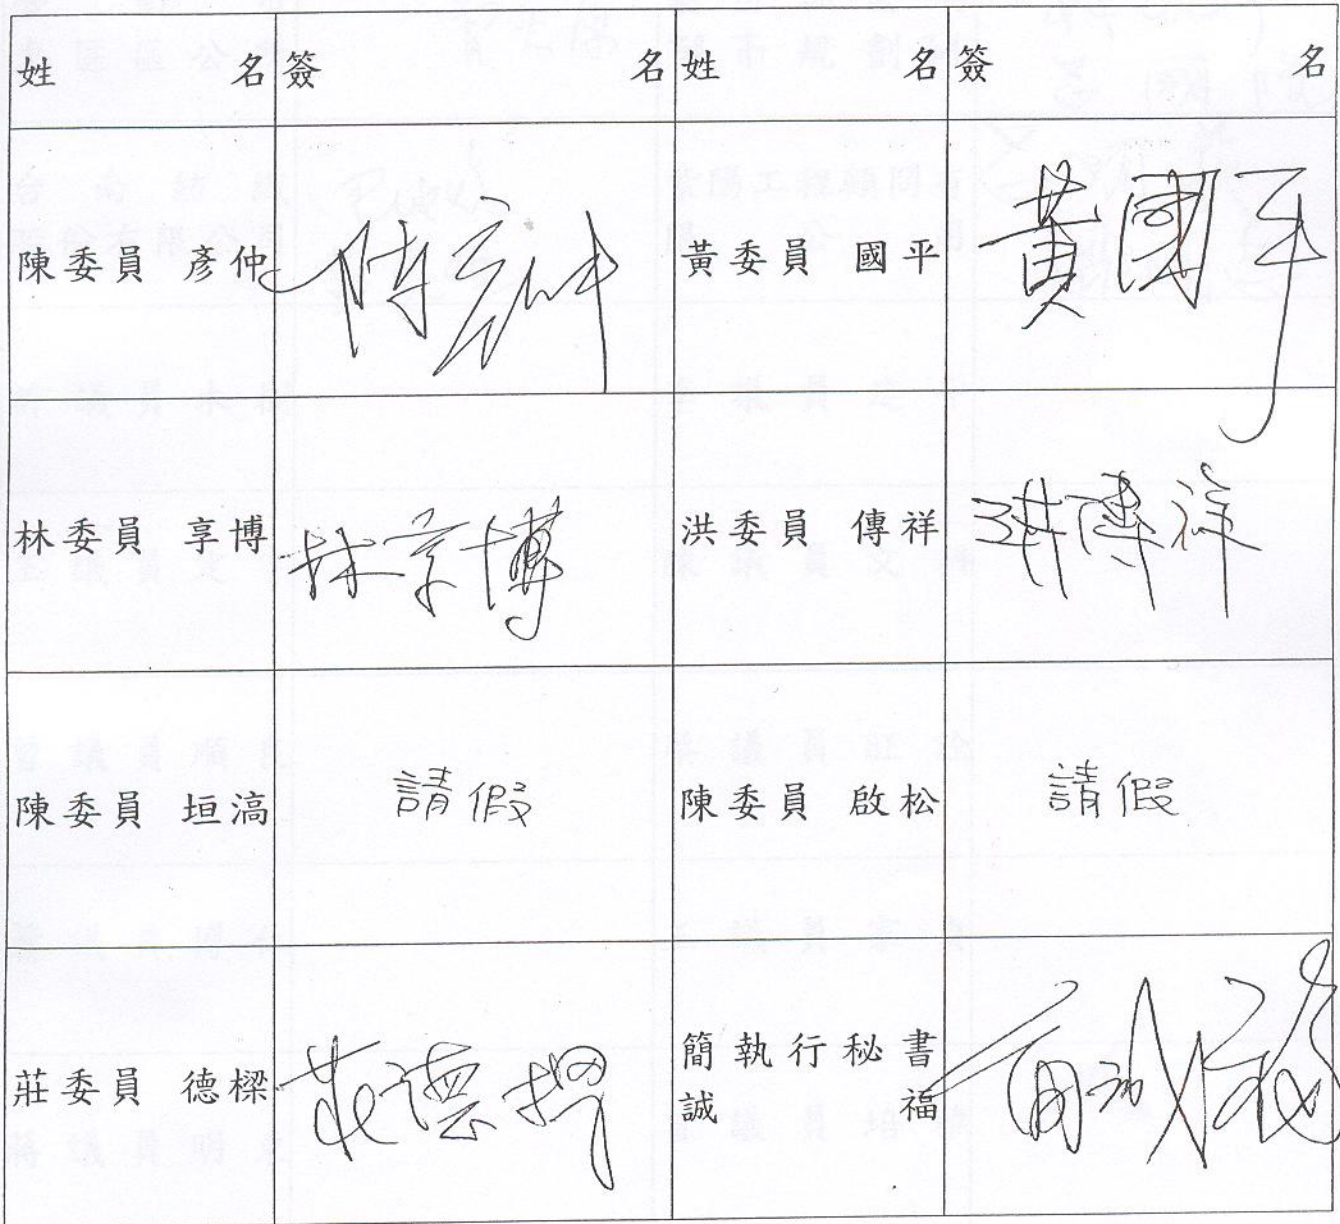 姓名 簽名 姓名 簽名
陳委員 彥仲 陳彥仲 黃委員 國平 黃國平
林委員 享博 林享博 洪委員 傳祥 洪傳祥
陳委員 垣滈 請假 陳委員 啟松 請假
莊委員 德樑 莊德樑 簡執行秘書
誠福 簡誠福